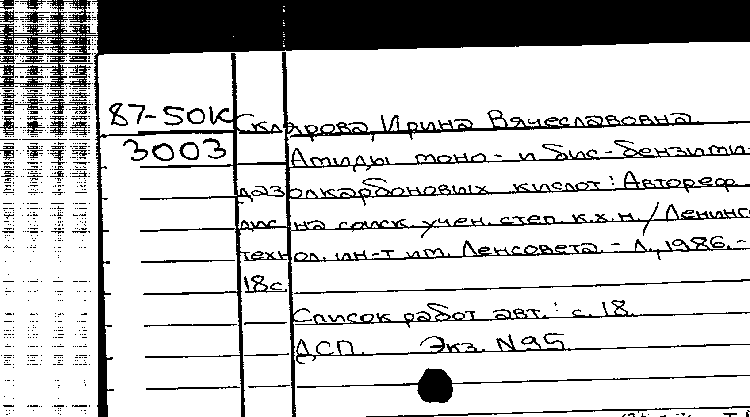 87-50К
3003
Склярова, Ирина Вячеславовна
Амиды моно- и бис-бензими-
дазолкарбоновых кислот: Автореф
дис на соиск. учен. степ. к.х.н. / Ленингр
технол. ин-т им. Ленсовета. - Л., 1986. -
18с
Список работ авт.: с. 18.
ДСП. Экз. N95